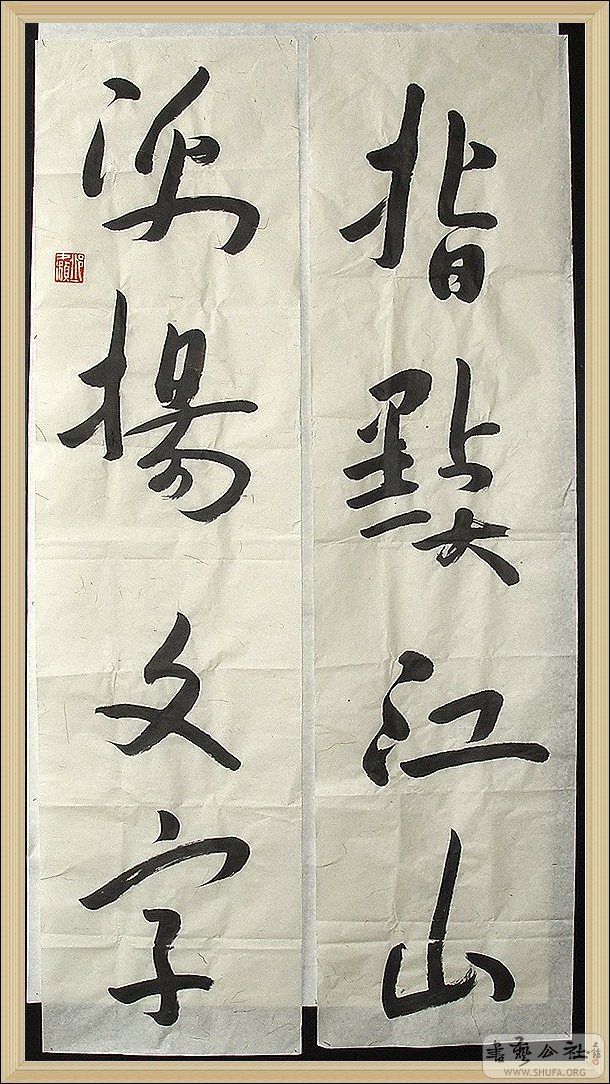 指點江山
激揚文字
書藝公社
WWW.SHUFA.ORG